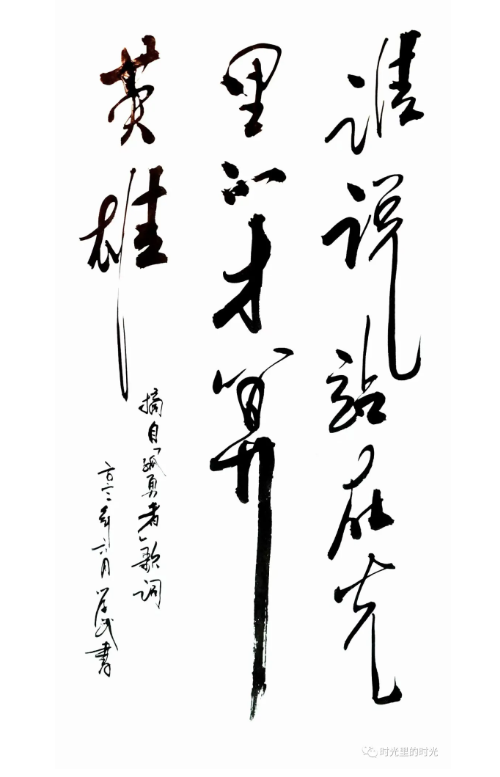 谁说站在光
里的才算
英雄
摘自《孤勇者》歌词
二〇二二年六月 学民书
时光里的时光